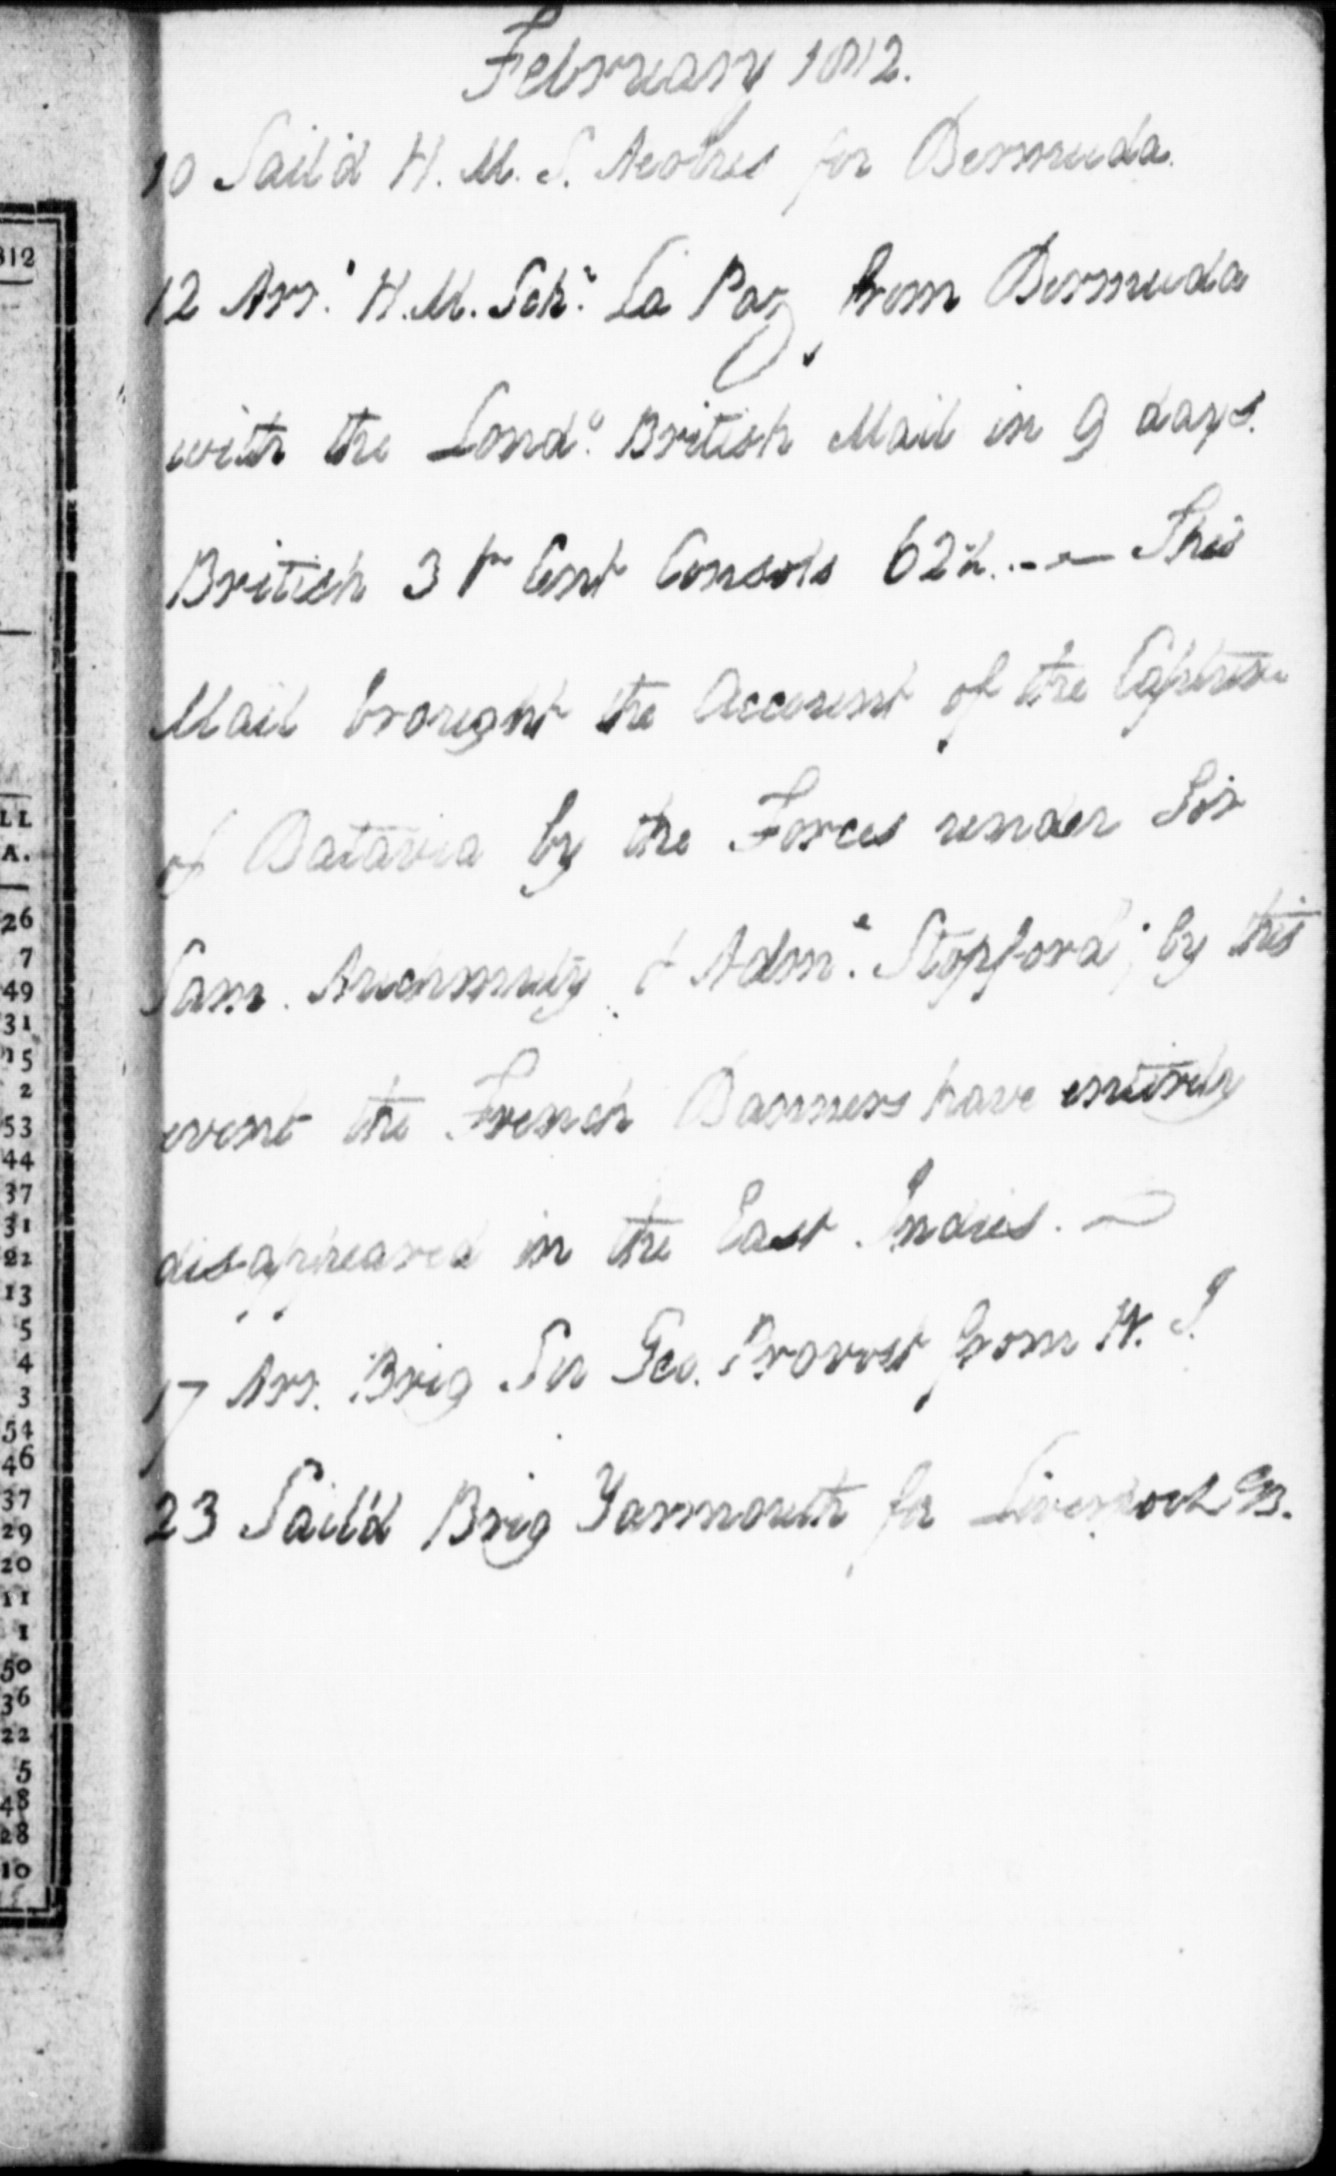 312
LL
A.
26
7
49
31
15
2
53
44
37
31
22
13
5
4
3
54
46
37
29
20
11
1
50
36
22
5
48
28
10
February 1812.
10 Sail'd H. M. S. Aeolus for Bermuda.
12 Arr. H. M. Schr. La Paz from Bermuda
with the Lond. British Mail in 9 days.
British 3 pr Cent Consols 62 — This
Mail brought the Account of the Capture
of Batavia by the Forces under Sir
Sam. Auchmuty & Adml. Stopford; by this
event the French Banners have entirely
disappeared in the East Indies. —
17 Arr. Brig Sir Geo. Provost from W. I.
23 Sail'd Brig Yarmouth for Liverpool GB.